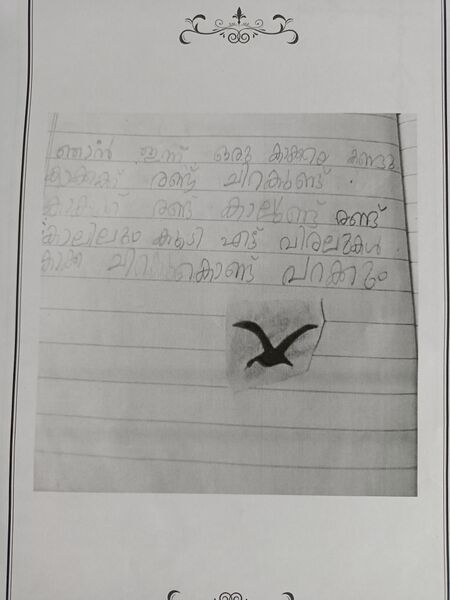 ഞാൻ ഇന്ന് ഒരു കാക്കയെ കണ്ടു
കാക്കക്ക് രണ്ട് ചിറകുണ്ട് .
കാക്കക്ക് രണ്ട് കാലുണ്ട് രണ്ട്
കാലിലും കൂടി എട്ട് വിരലുകൾ .
കാക്ക ചിറകുകൊണ്ട് പറക്കും